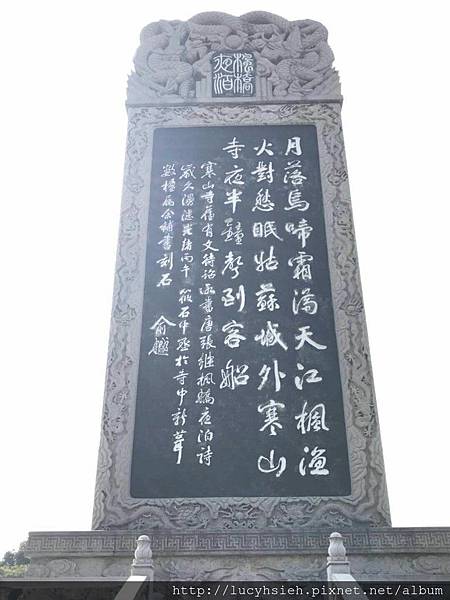 楓橋
夜泊
月落烏啼霜滿天江楓漁
火對愁眠姑蘇城外寒山
寺夜半鐘聲到客船
寒山寺舊有文待詔所書唐張繼楓橋夜泊詩
歲久漫漶光緒丙午筱石中丞於寺中新葺
數楹屬余補書刻石
俞樾
http://lucyhsieh.pixnet.net/album